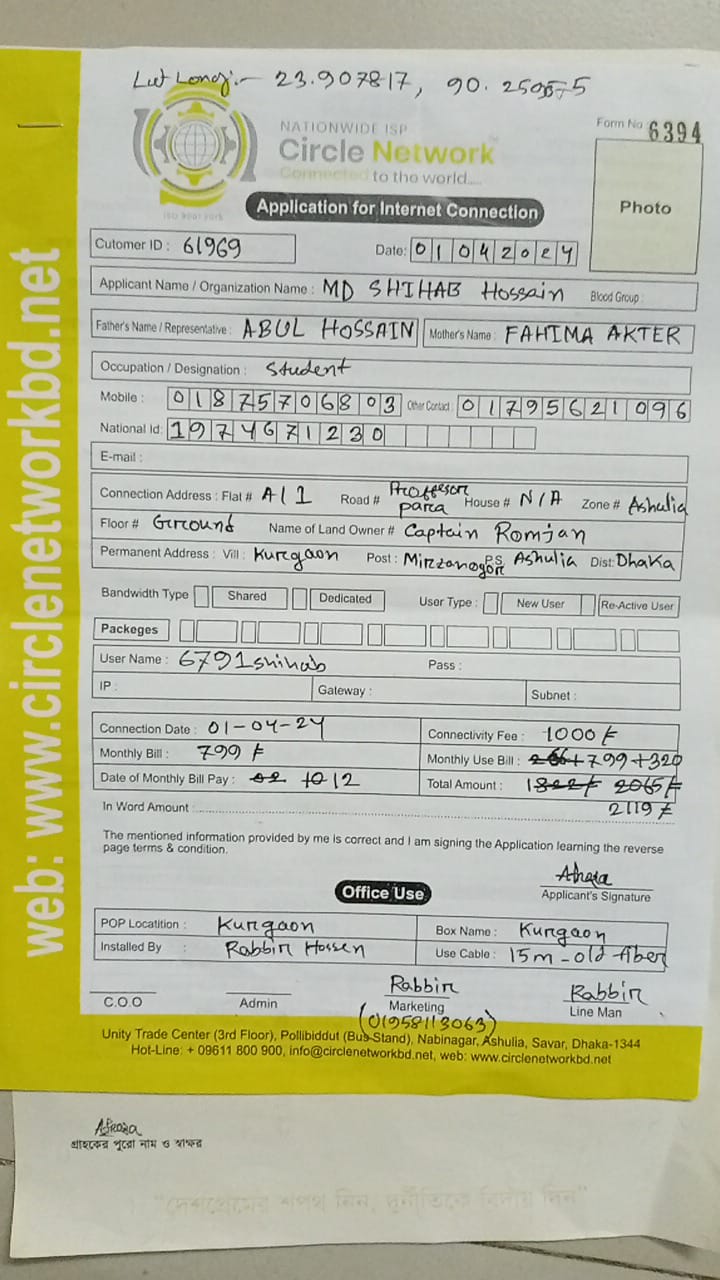 Lat Long:- 23.907817, 90.25
NATIONWIDE ISP
Circle Network
Connected to the world....
ISO 9001:2015
Form No 6394
Photo
Application for Internet Connection
Cutomer ID : 61969
Date: 01042024
Applicant Name / Organization Name : MD SHIHAB Hossain Blood Group :
Father's Name / Representative : ABUL HOSSAIN Mother's Name : FAHIMA AKTER
Occupation / Designation : Student
Mobile : 01875706803 Other Contact : 01795621096
National Id: 1974671230
E-mail :
Connection Address : Flat # A/1 Road # Proffesor para House # N/A Zone # Ashulia
Floor # Ground Name of Land Owner # Captain Romjan
Permanent Address : Vill : Kurgaon Post : Mirzanogor P.S Ashulia Dist: Dhaka
Bandwidth Type Shared Dedicated User Type : New User Re-Active User
Packeges
User Name : 6791shihab Pass :
IP : Gateway : Subnet :
Connection Date : 01-04-24 Connectivity Fee : 1000/-
Monthly Bill : 799/- Monthly Use Bill : 266+799+320
Date of Monthly Bill Pay : 02 to 12 Total Amount : 1822/- 2065/-
2119/-
In Word Amount
The mentioned information provided by me is correct and I am signing the Application learning the reverse
page terms & condition.
Afroja
Applicant's Signature
Office Use
POP Locatition : Kurgaon Box Name : Kurgaon
Installed By : Rabbir Hossen Use Cable : 15m - old fiber
Rabbir Rabbir
C.O.O Admin Marketing Line Man
(01958113063)
Unity Trade Center (3rd Floor), Pollibiddut (Bus Stand), Nabinagar, Ashulia, Savar, Dhaka-1344
Hot-Line: + 09611 800 900, info@circlenetworkbd.net, web: www.circlenetworkbd.net
web: www.circlenetworkbd.net
Afroja
গ্রাহকের পুরো নাম ও স্বাক্ষর
"দেশপ্রেমের শপথ নিন, দুর্নীতিকে বিদায় দিন"